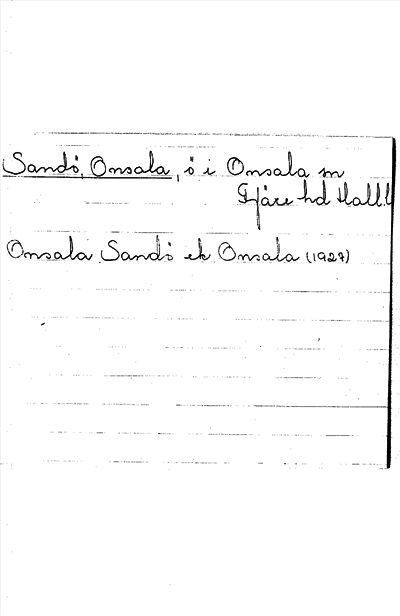 Sandö, Onsala, ö i Onsala sn
Fjäre hd Hall.l
Onsala Sandö ek Onsala (1927)